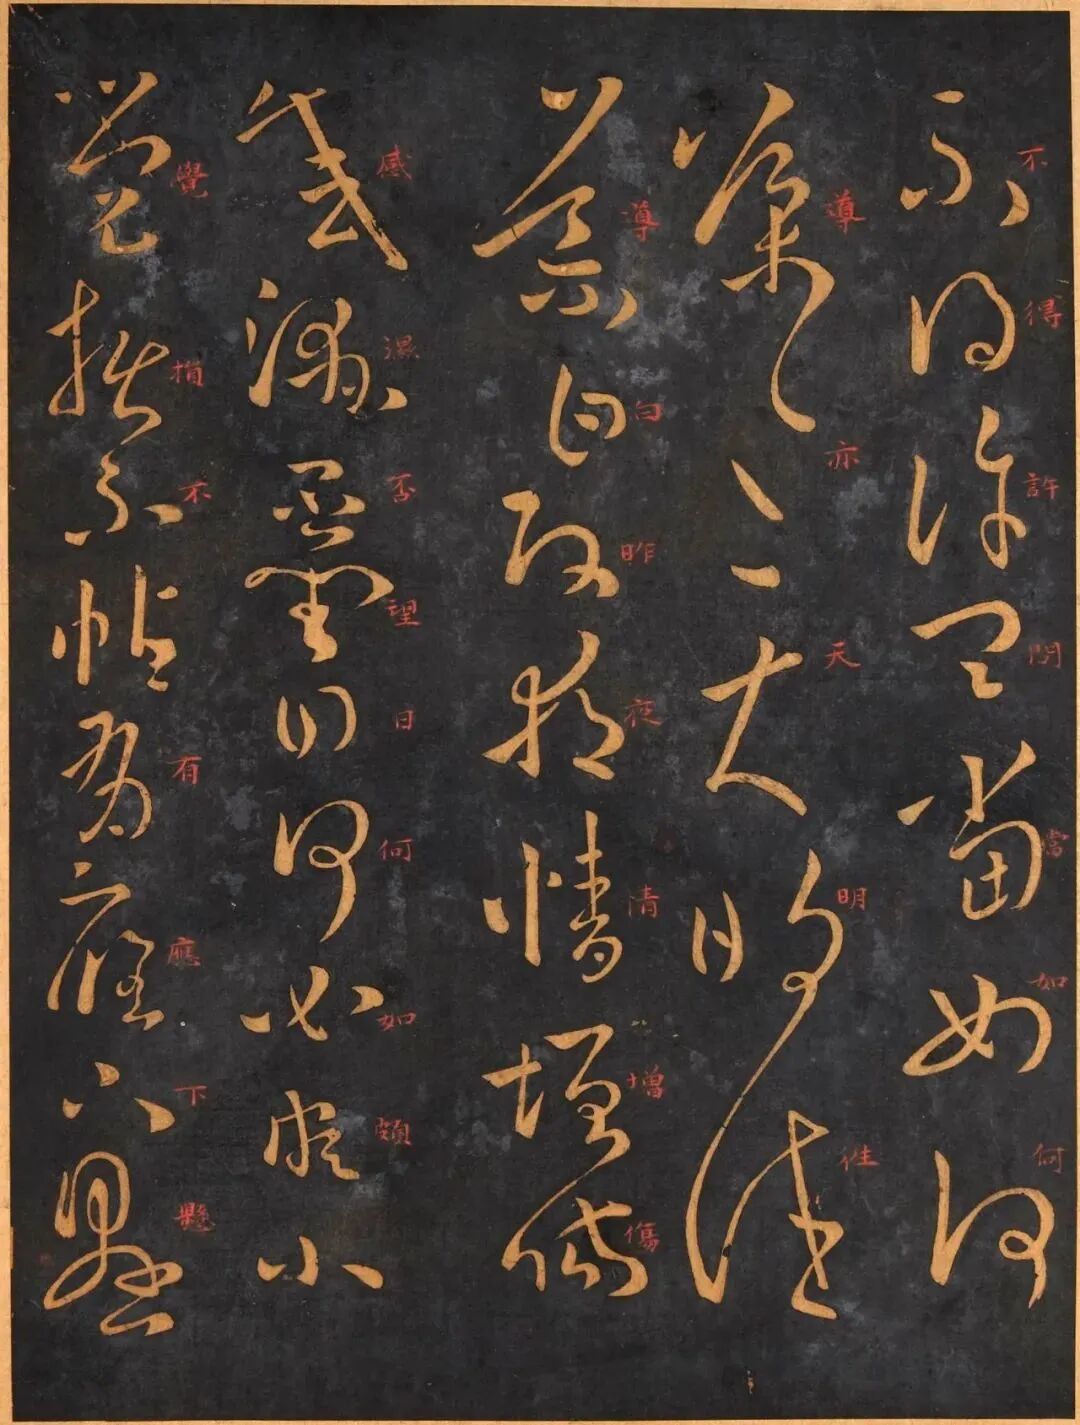 不得許問當如何
導亦天明往
導白昨夜清增傷
感濕否望日何如頗
覺損不帖有應下懸